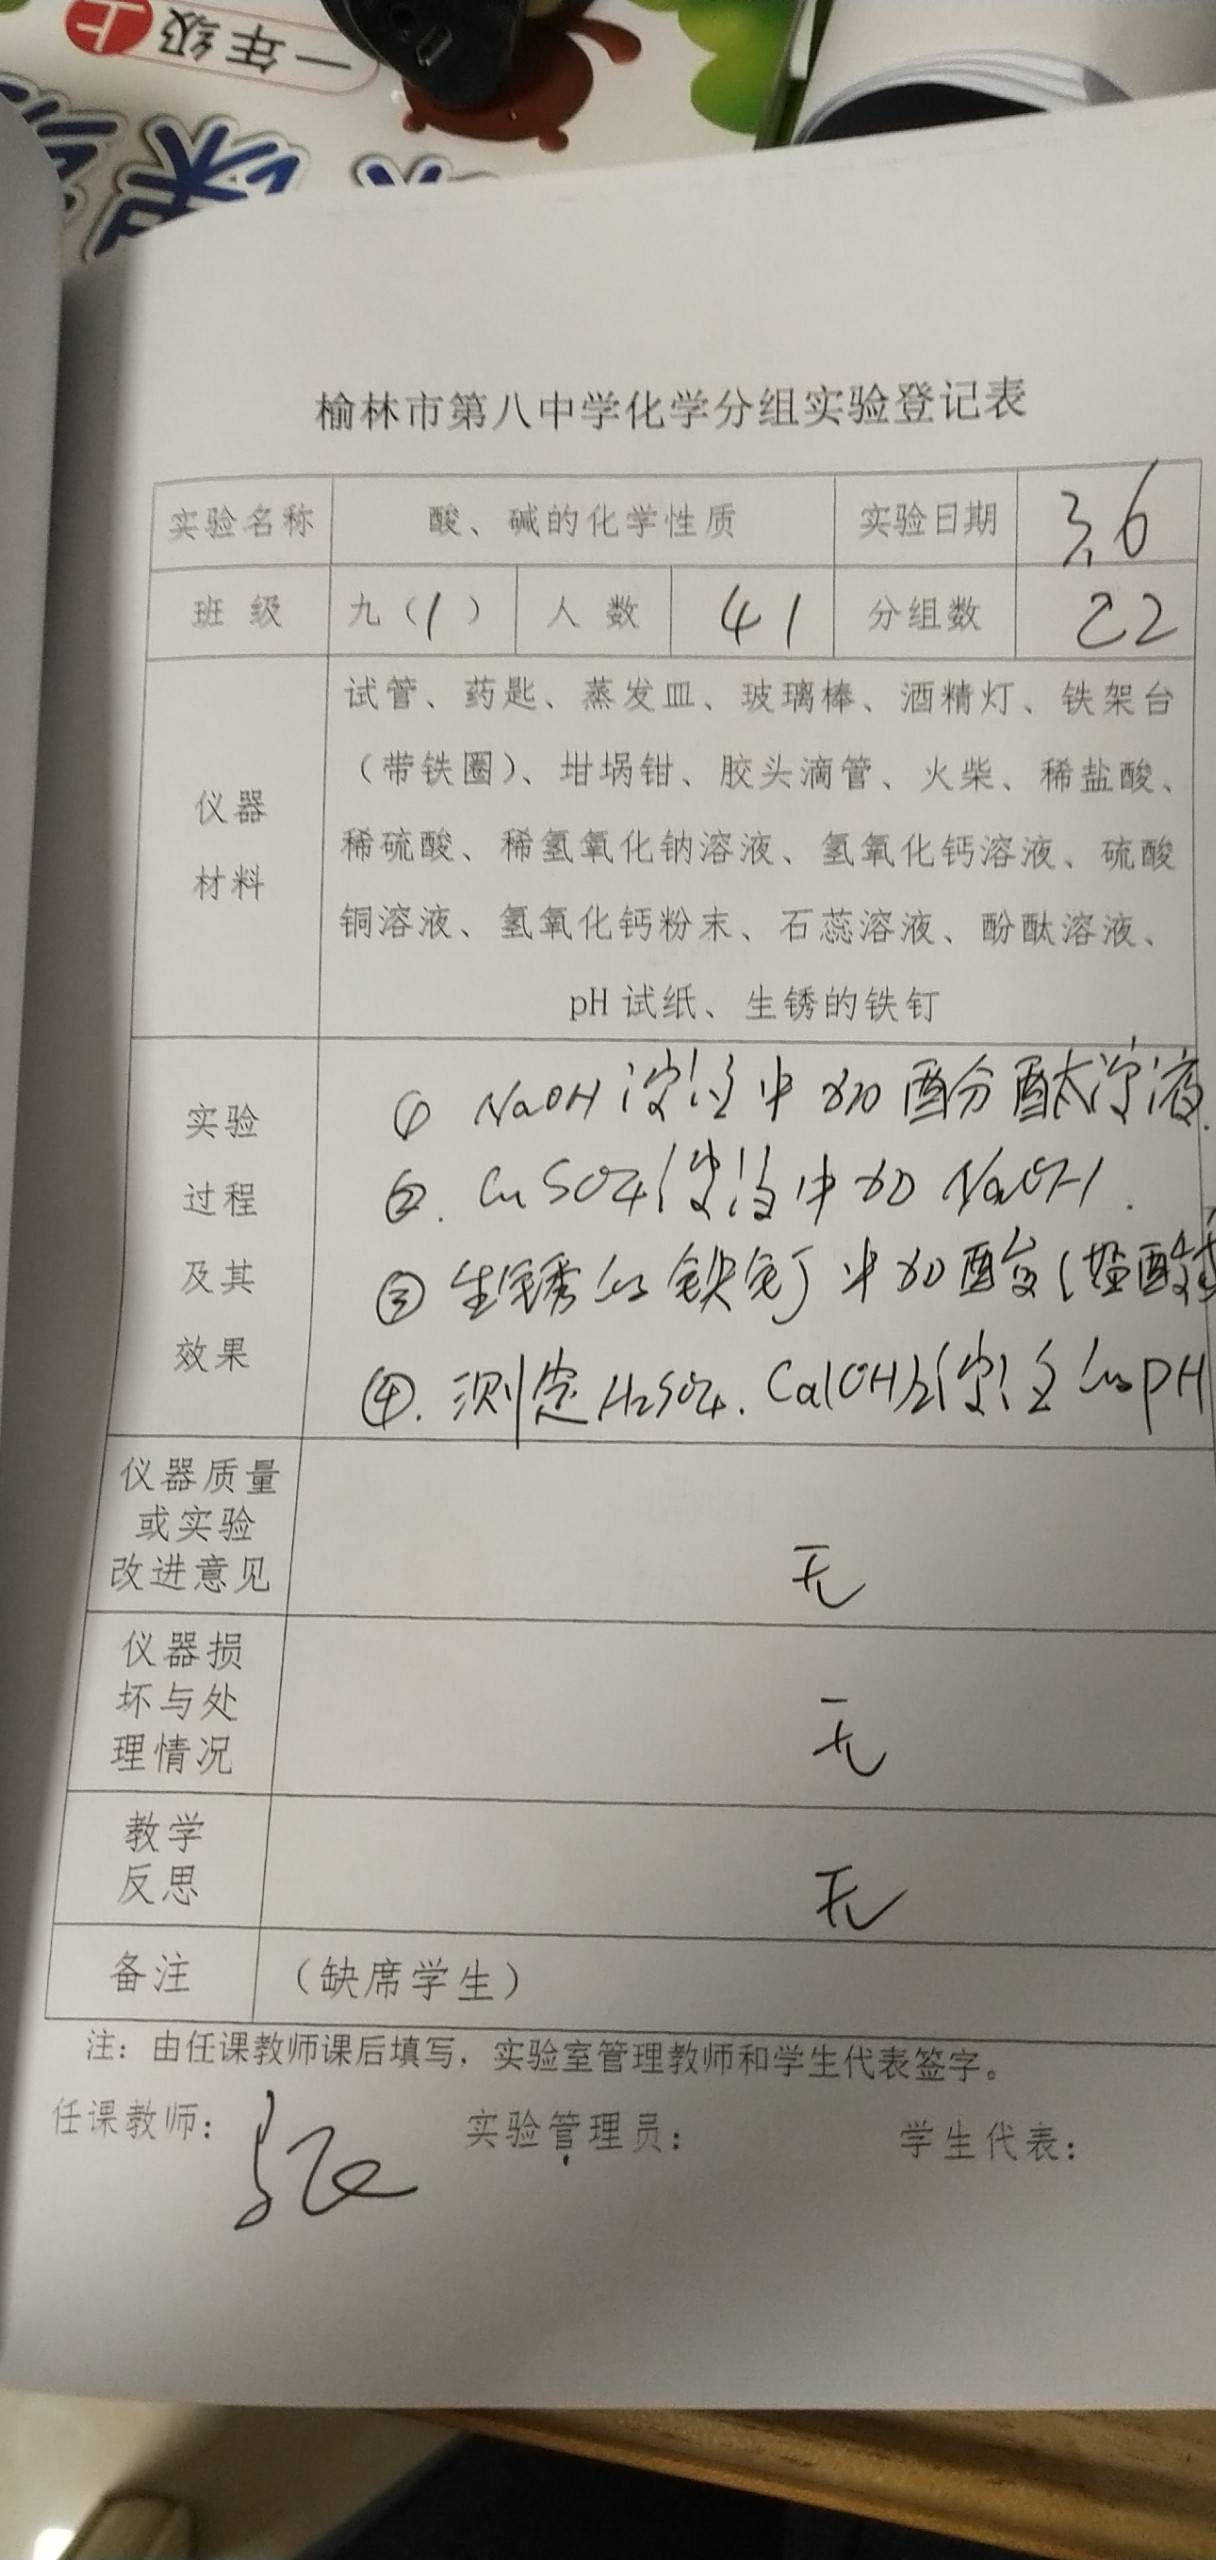 一年级 上
榆林市第八中学化学分组实验登记表
实验名称 酸、碱的化学性质 实验日期 3.6
班 级 九（1） 人 数 41 分组数 22
仪器材料
试管、药匙、蒸发皿、玻璃棒、酒精灯、铁架台
（带铁圈）、坩埚钳、胶头滴管、火柴、稀盐酸、
稀硫酸、稀氢氧化钠溶液、氢氧化钙溶液、硫酸
铜溶液、氢氧化钙粉末、石蕊溶液、酚酞溶液、
pH 试纸、生锈的铁钉
实验
过程
及其
效果
① NaOH溶液中加酚酞溶液.
②. CuSO4溶液中加 NaOH.
③ 生锈的铁钉中加酸（盐酸
④. 测定H2SO4. Ca(OH)2溶液的pH
仪器质量
或实验
改进意见
无
仪器损
坏与处
理情况
无
教学
反思
无
备注 （缺席学生）
注：由任课教师课后填写，实验室管理教师和学生代表签字。
任课教师： 实验管理员： 学生代表：